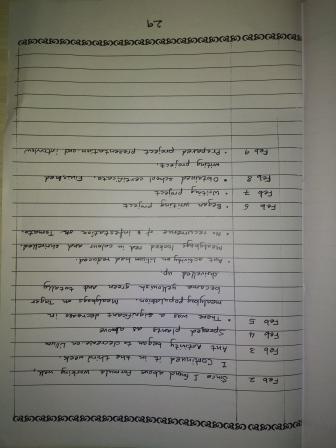 Feb 2 Since I found above formula working well,
I continued it in the third week.
Feb 3 Ant activity began to decrease on
Feb 4 Sprayed plants as above
Feb 5 • There was a significant decrease in
mealybug population. Mealybugs on
became yellowish green and totally
shrivelled up.
• Ant activity in had reduced.
Mealybugs looked red in colour and shrivelled.
• No recurrence of infestation on Tomato.
Feb 6 • Began writing project
Feb 7 • Writing project
Feb 8 • Obtained school certificate. Finished
writing project.
Feb 9 • Prepared project presentation and interview
29